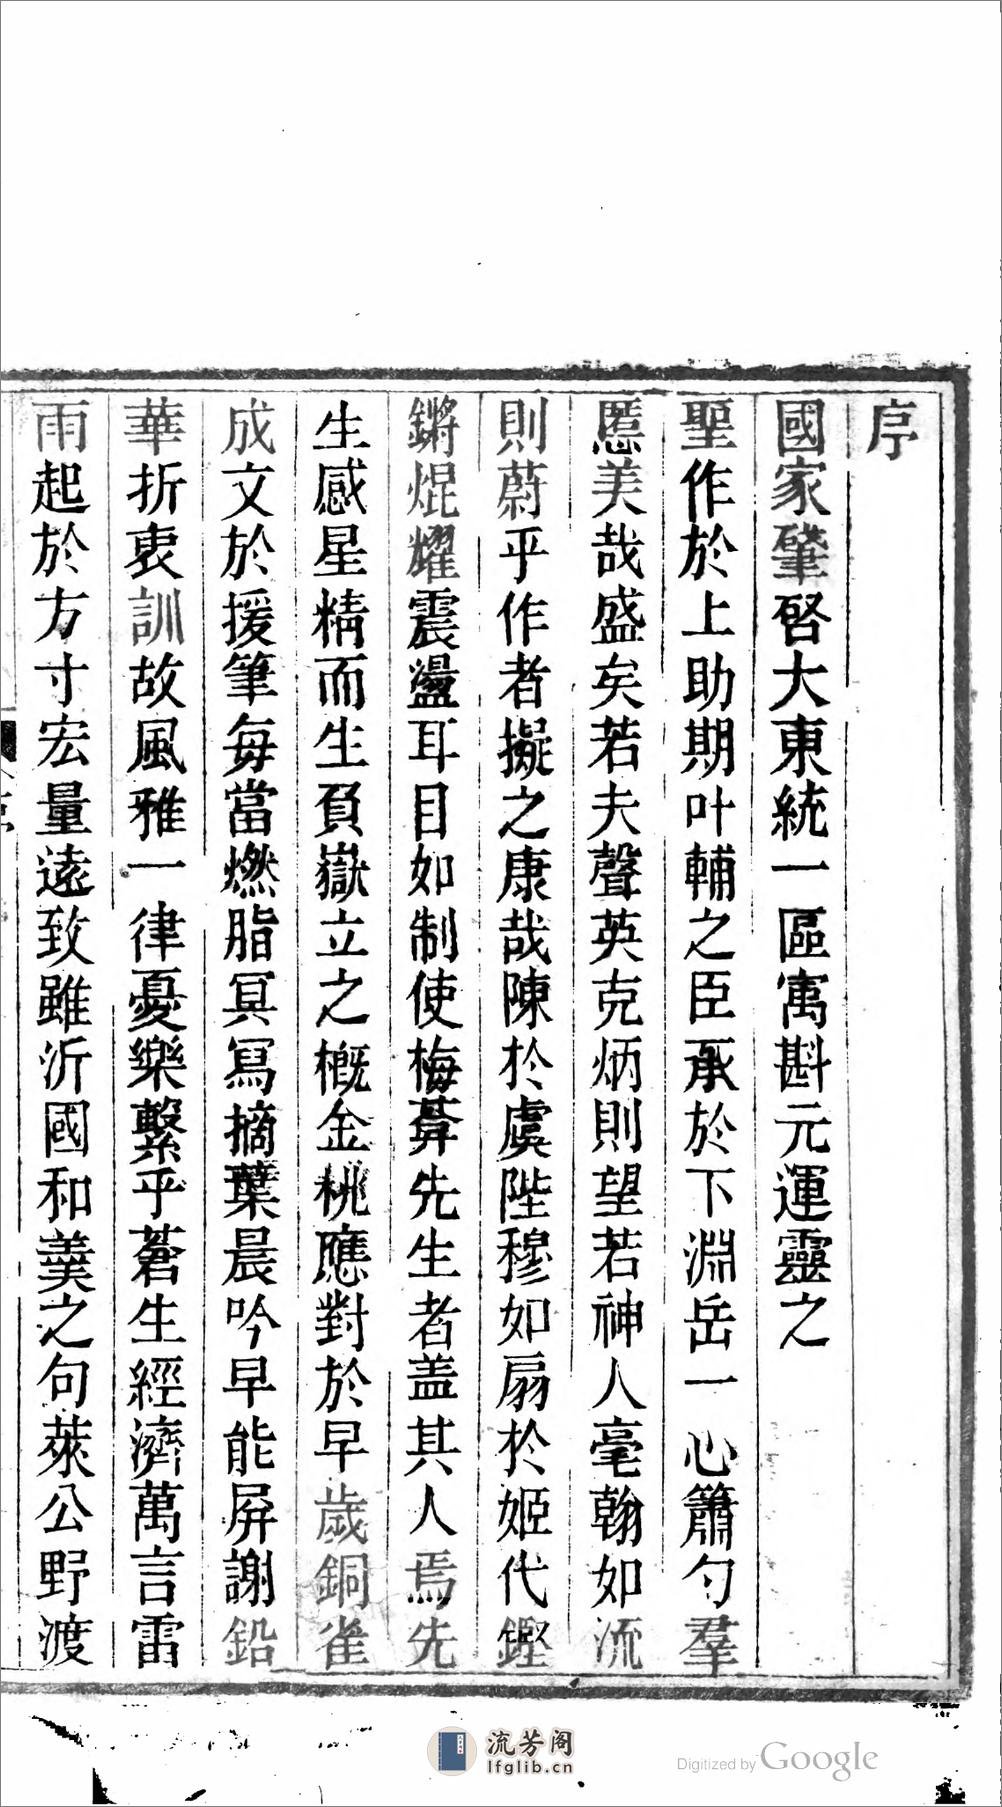 序
國家肇啓大東統一區寓斟元運靈之
聖作於上助期叶輔之臣承於下淵岳一心簫勺羣
慝美哉盛矣若夫聲英克炳則望若神人毫翰如流
則蔚乎作者擬之康哉陳於虞陛穆如扇於姬代鏗
鏘焜耀震盪耳目如制使梅葊先生者盖其人焉先
生感星精而生負嶽立之概金桃應對於早歲銅雀
成文於援筆每當燃脂冥冩摘葉晨吟早能屏謝鉛
華折衷訓故風雅一律憂樂繫乎蒼生經濟萬言雷
雨起於方寸宏量遠致雖沂國和羹之句萊公野渡
流芳阁
lfglib.cn
Digitized by Google